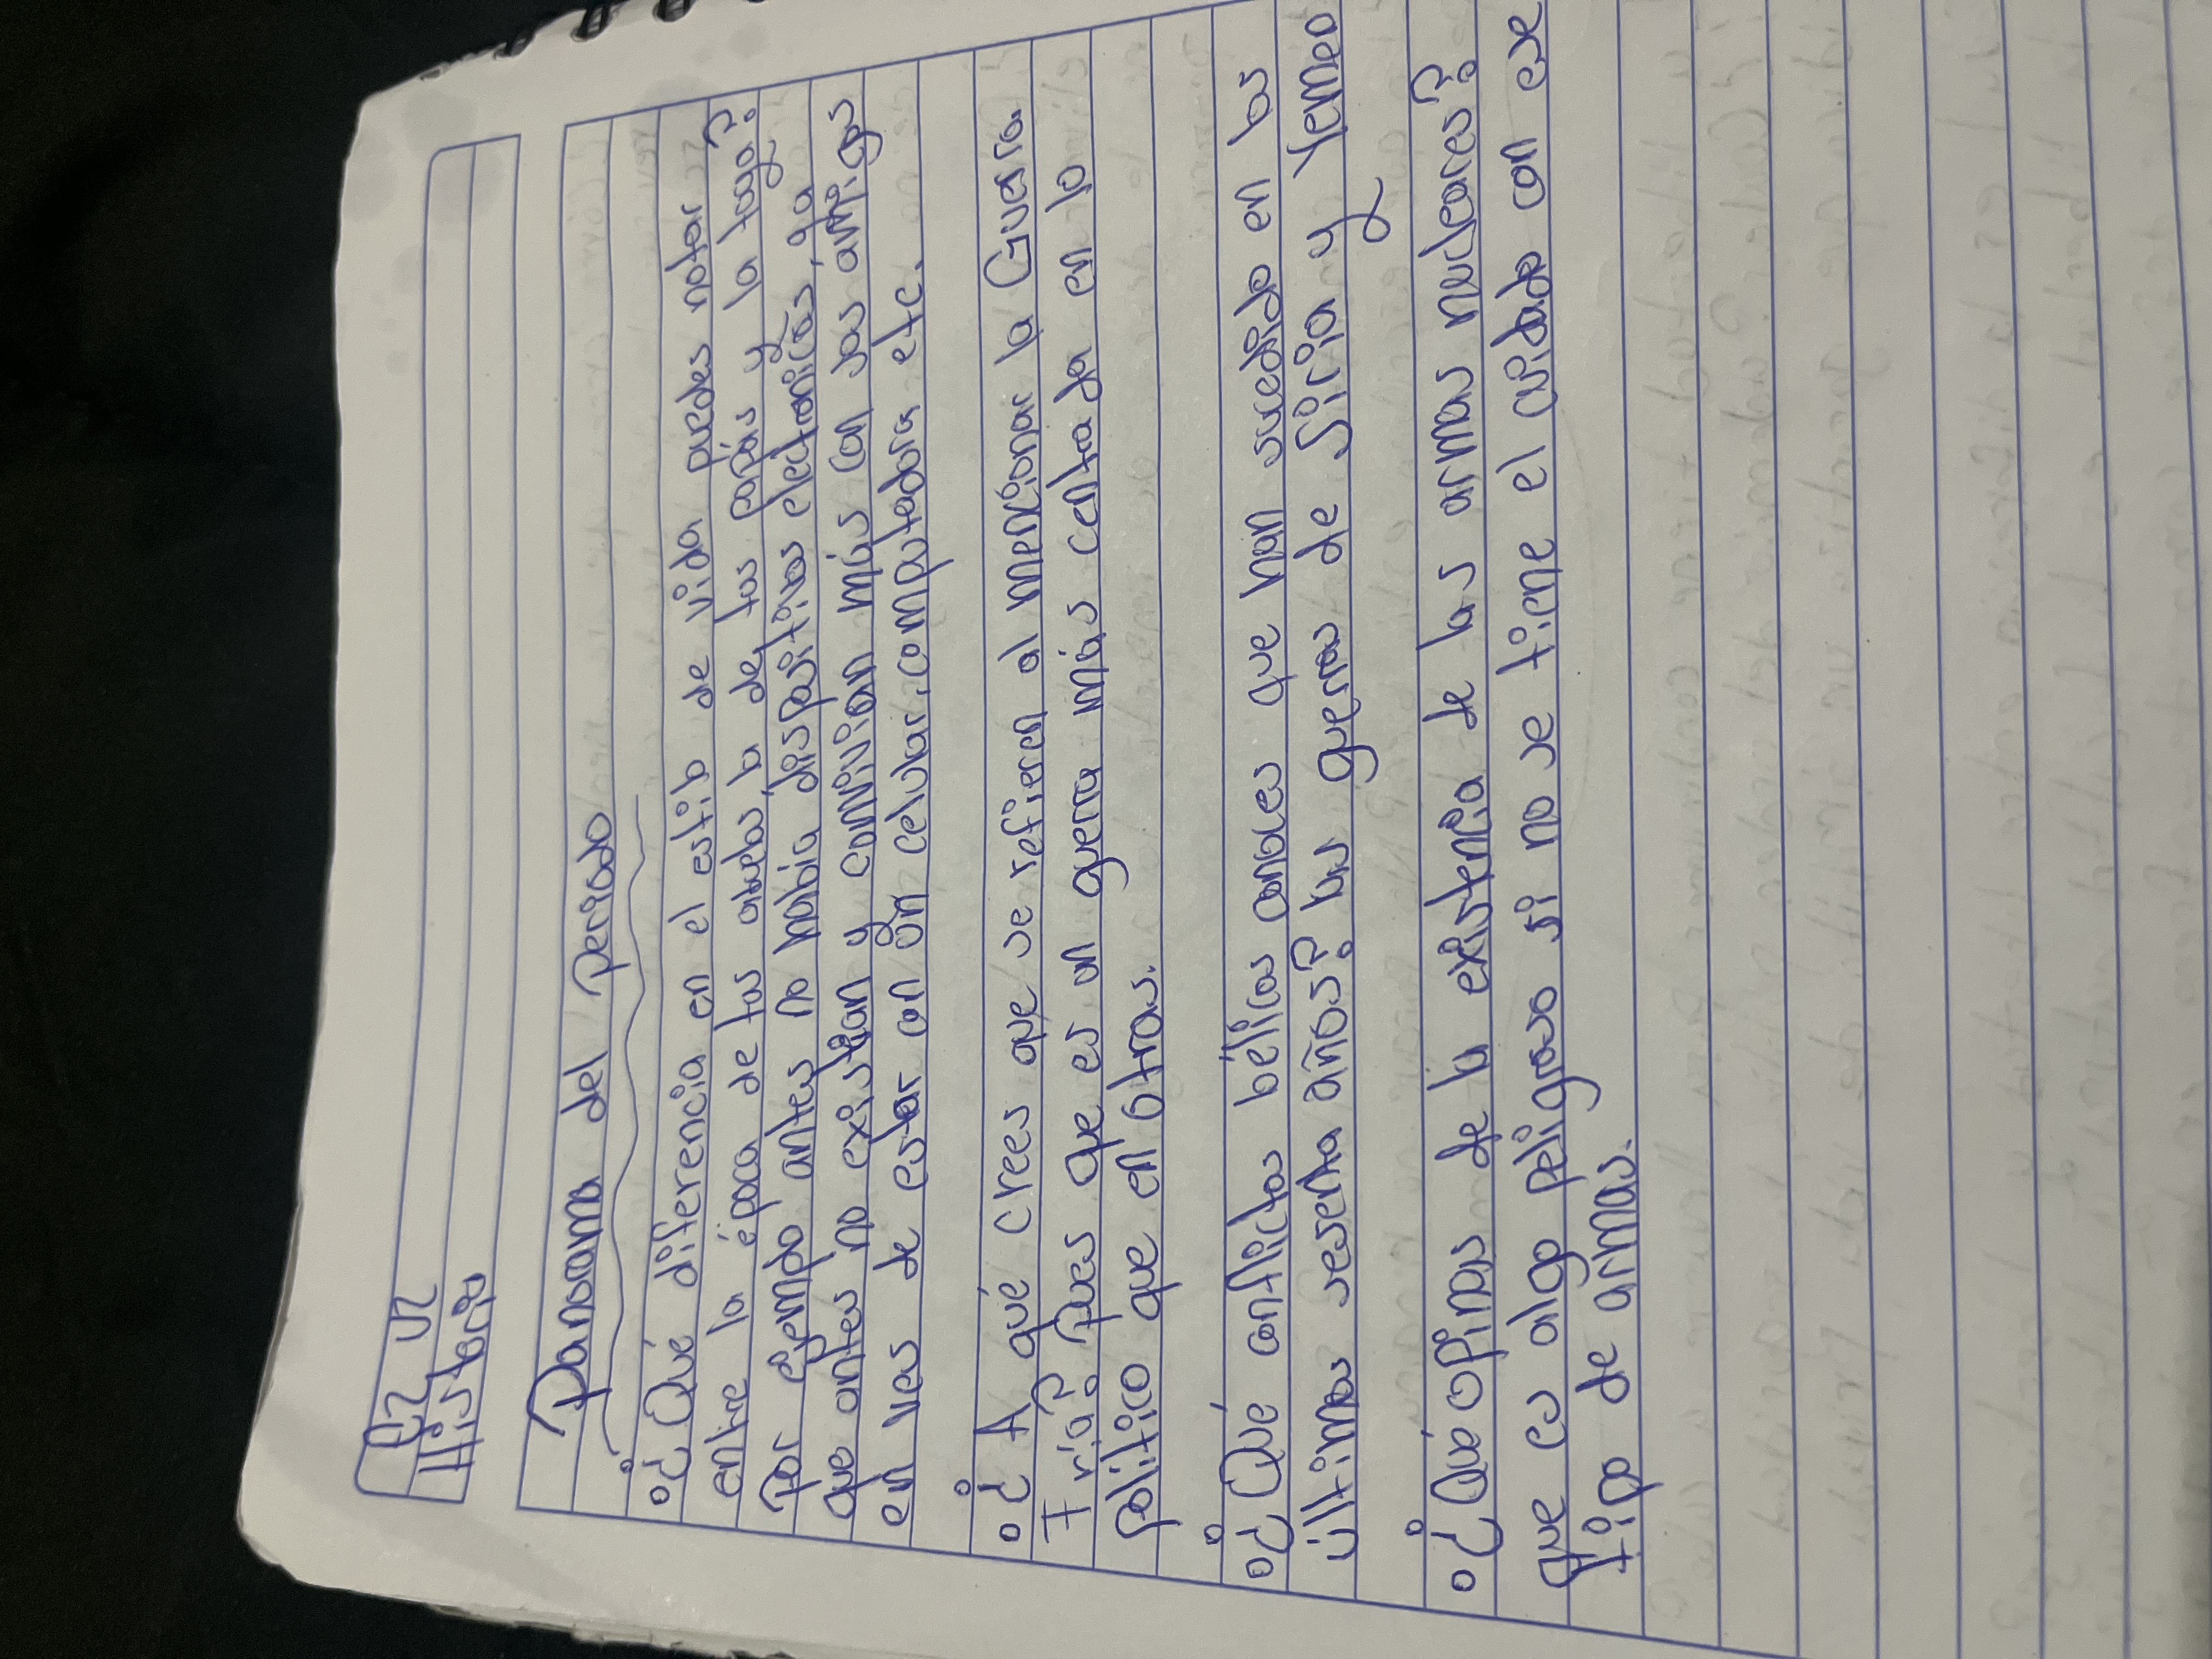 P2 U2
Historia
Panorama del periodo
¿Qué diferencia en el estilo de vida puedes notar
entre la época de tus abuelos, la de tus papás y la tuya?
Por ejemplo antes no había dispositivos electronicos, ya
que antes no existían y convivian más con sus amigos
en ves de estar con un celular, computadora etc.
¿A qué crees que se refieren al mencionar la Guerra
Fría? Pues que es un guerra más centrada en lo
político que en otras.
¿Qué conflictos bélicos conoles que han sucedido en los
últimos sesenta años? Las guerras de Siria y Yemen
¿Qué opinas de la existencia de las armas nucleares?
Que es algo peligroso si no se tiene el cuidado con ese
tipo de armas.